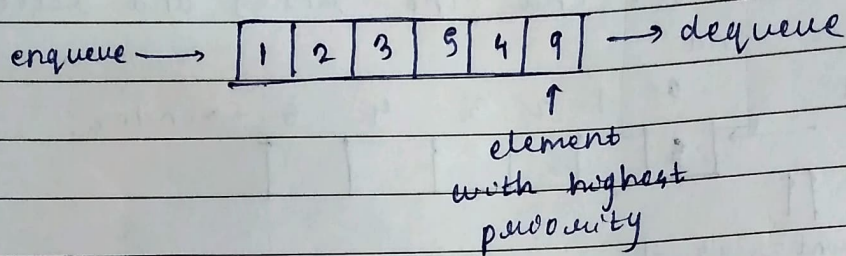 enqueue → 1 2 3 5 4 9 → dequeue
↑
element
with highest
priority